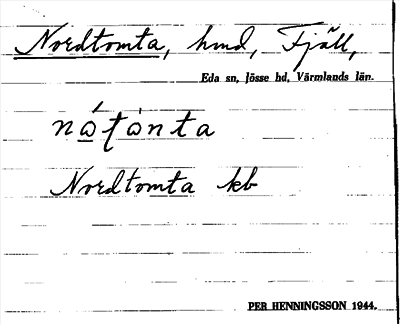 Nordtomta, hmd, Fjäll,
Eda sn, Jösse hd, Värmlands län.
Nordtomta kb
PER HENNINGSSON 1944.